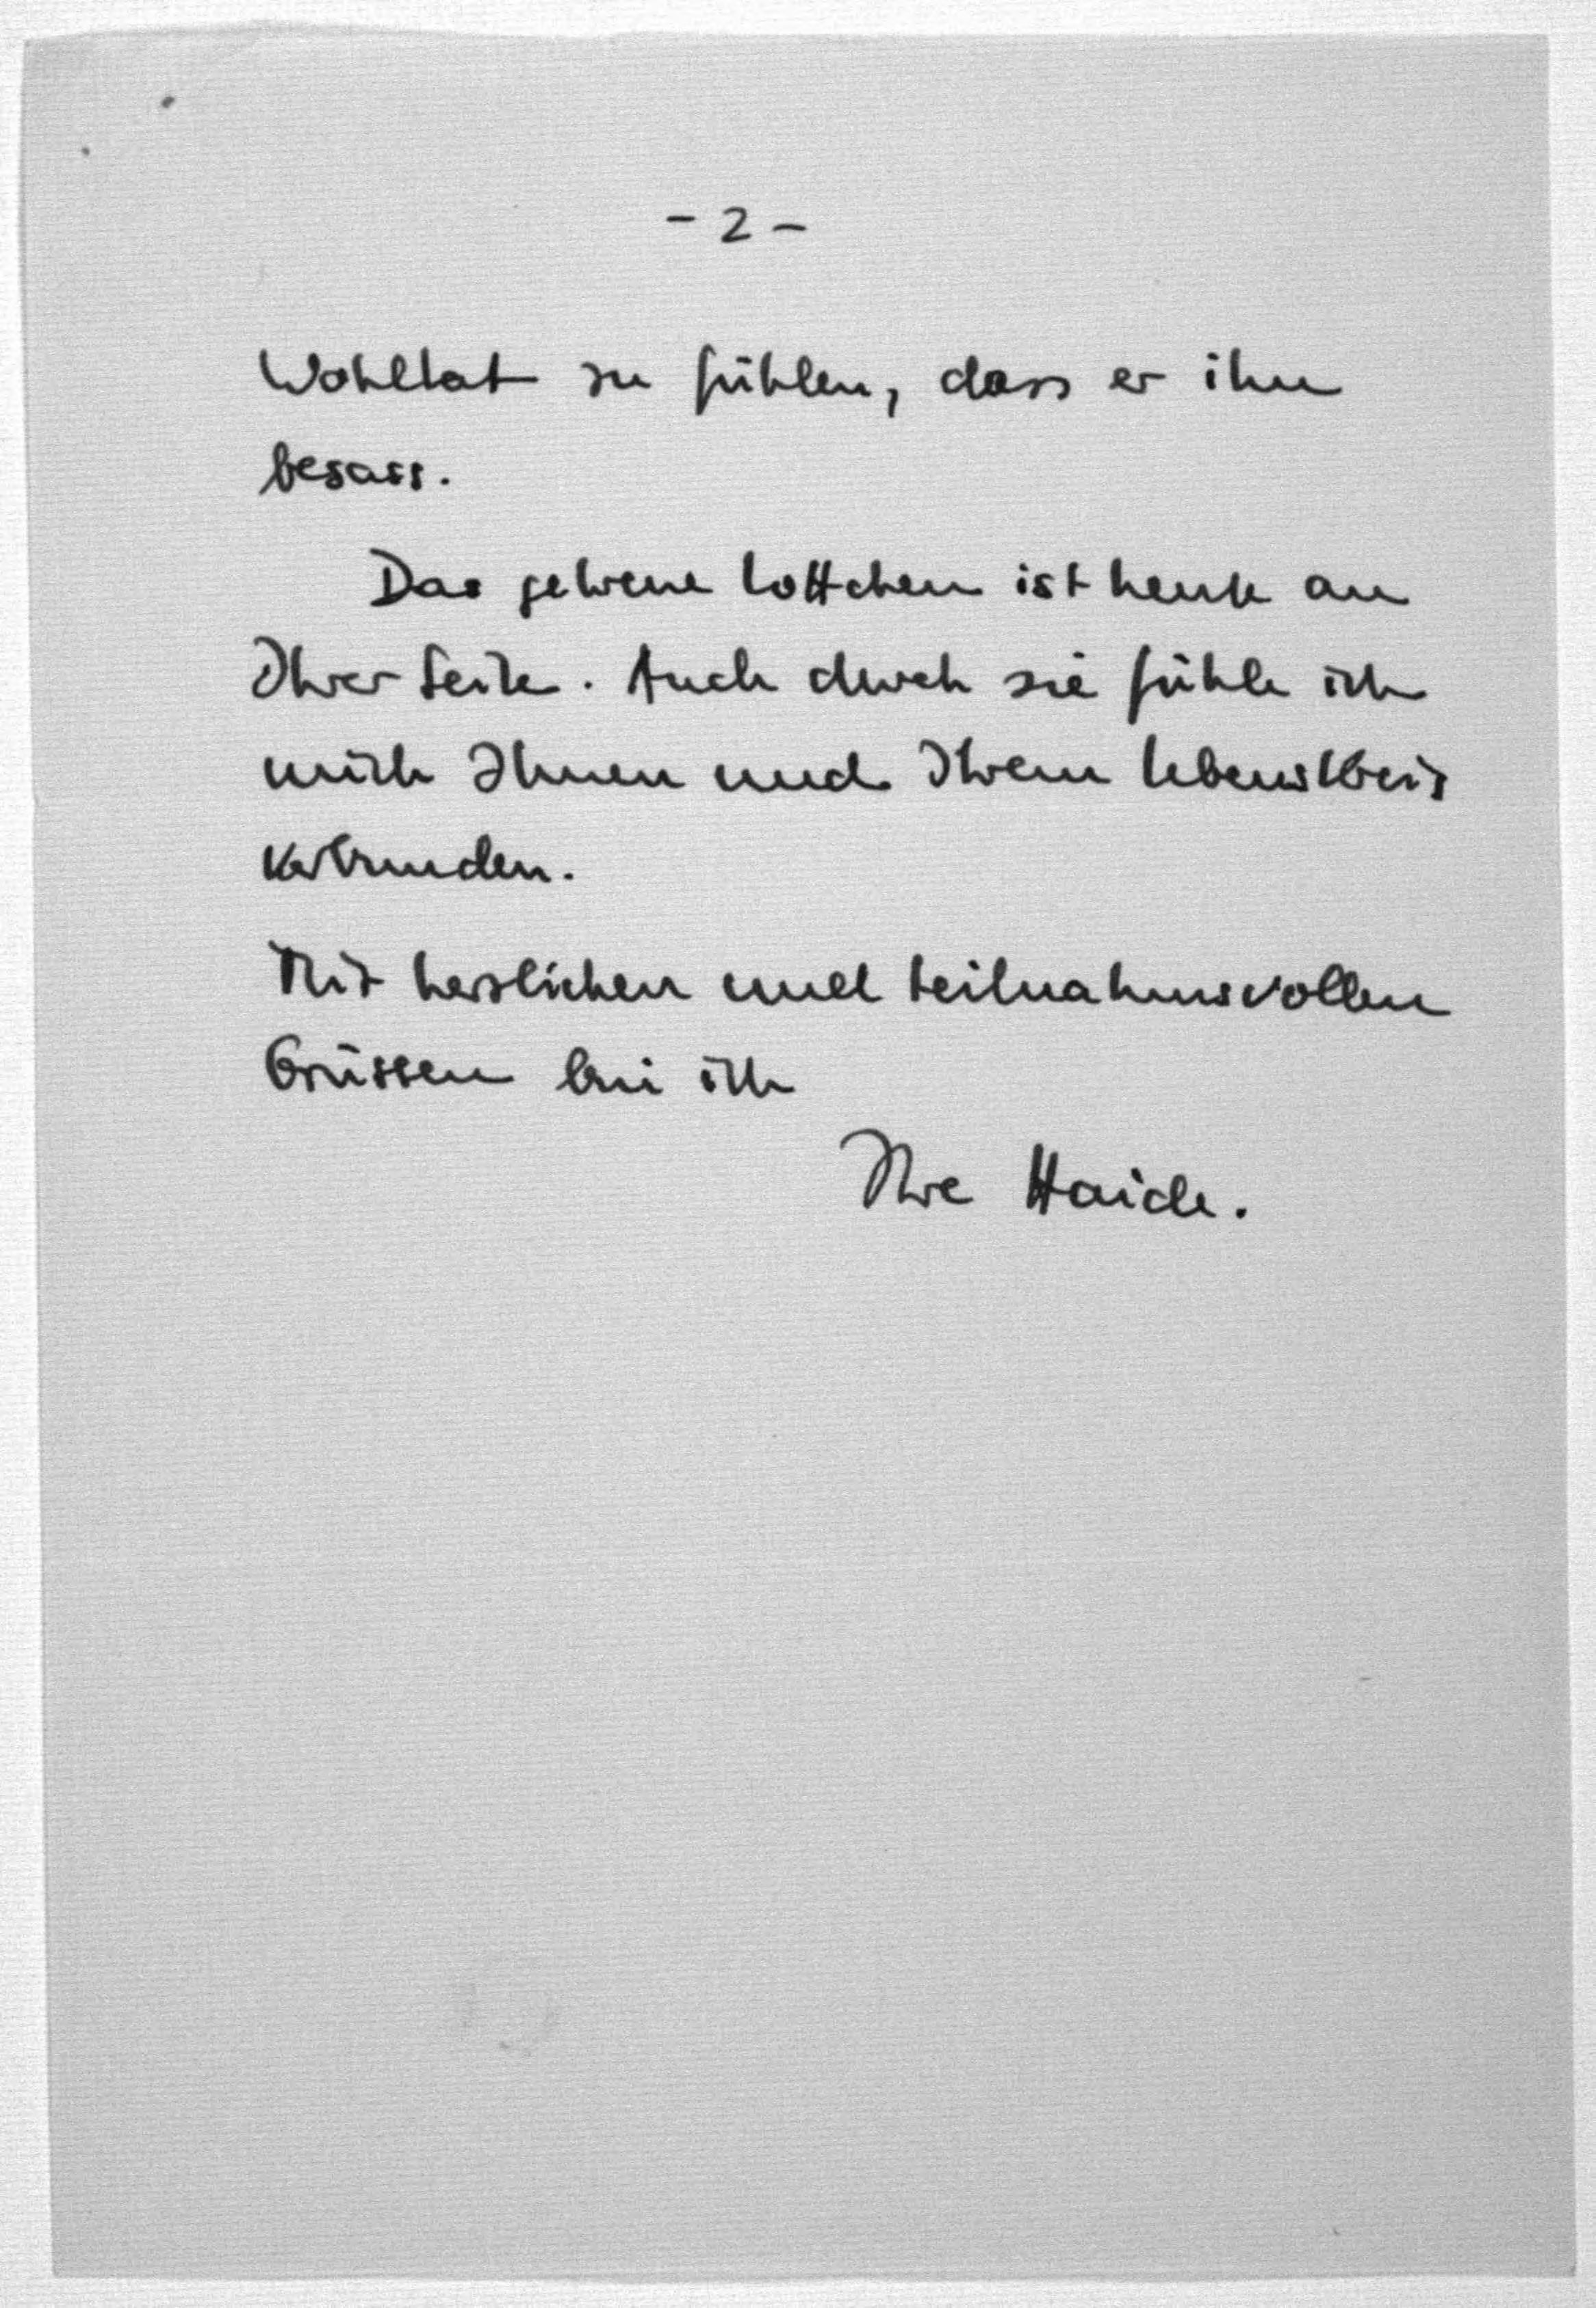 - 2 -
Wohltat zu fühlen, dass er ihn
besass.
Das getreue Lottchen ist heute an
Ihrer Seite. Auch durch sie fühle ich
mich Ihnen und Ihrem Lebenskreis
verbunden.
Mit herzlichen und teilnahmsvollen
Grüssen bin ich
Ihre Haide.